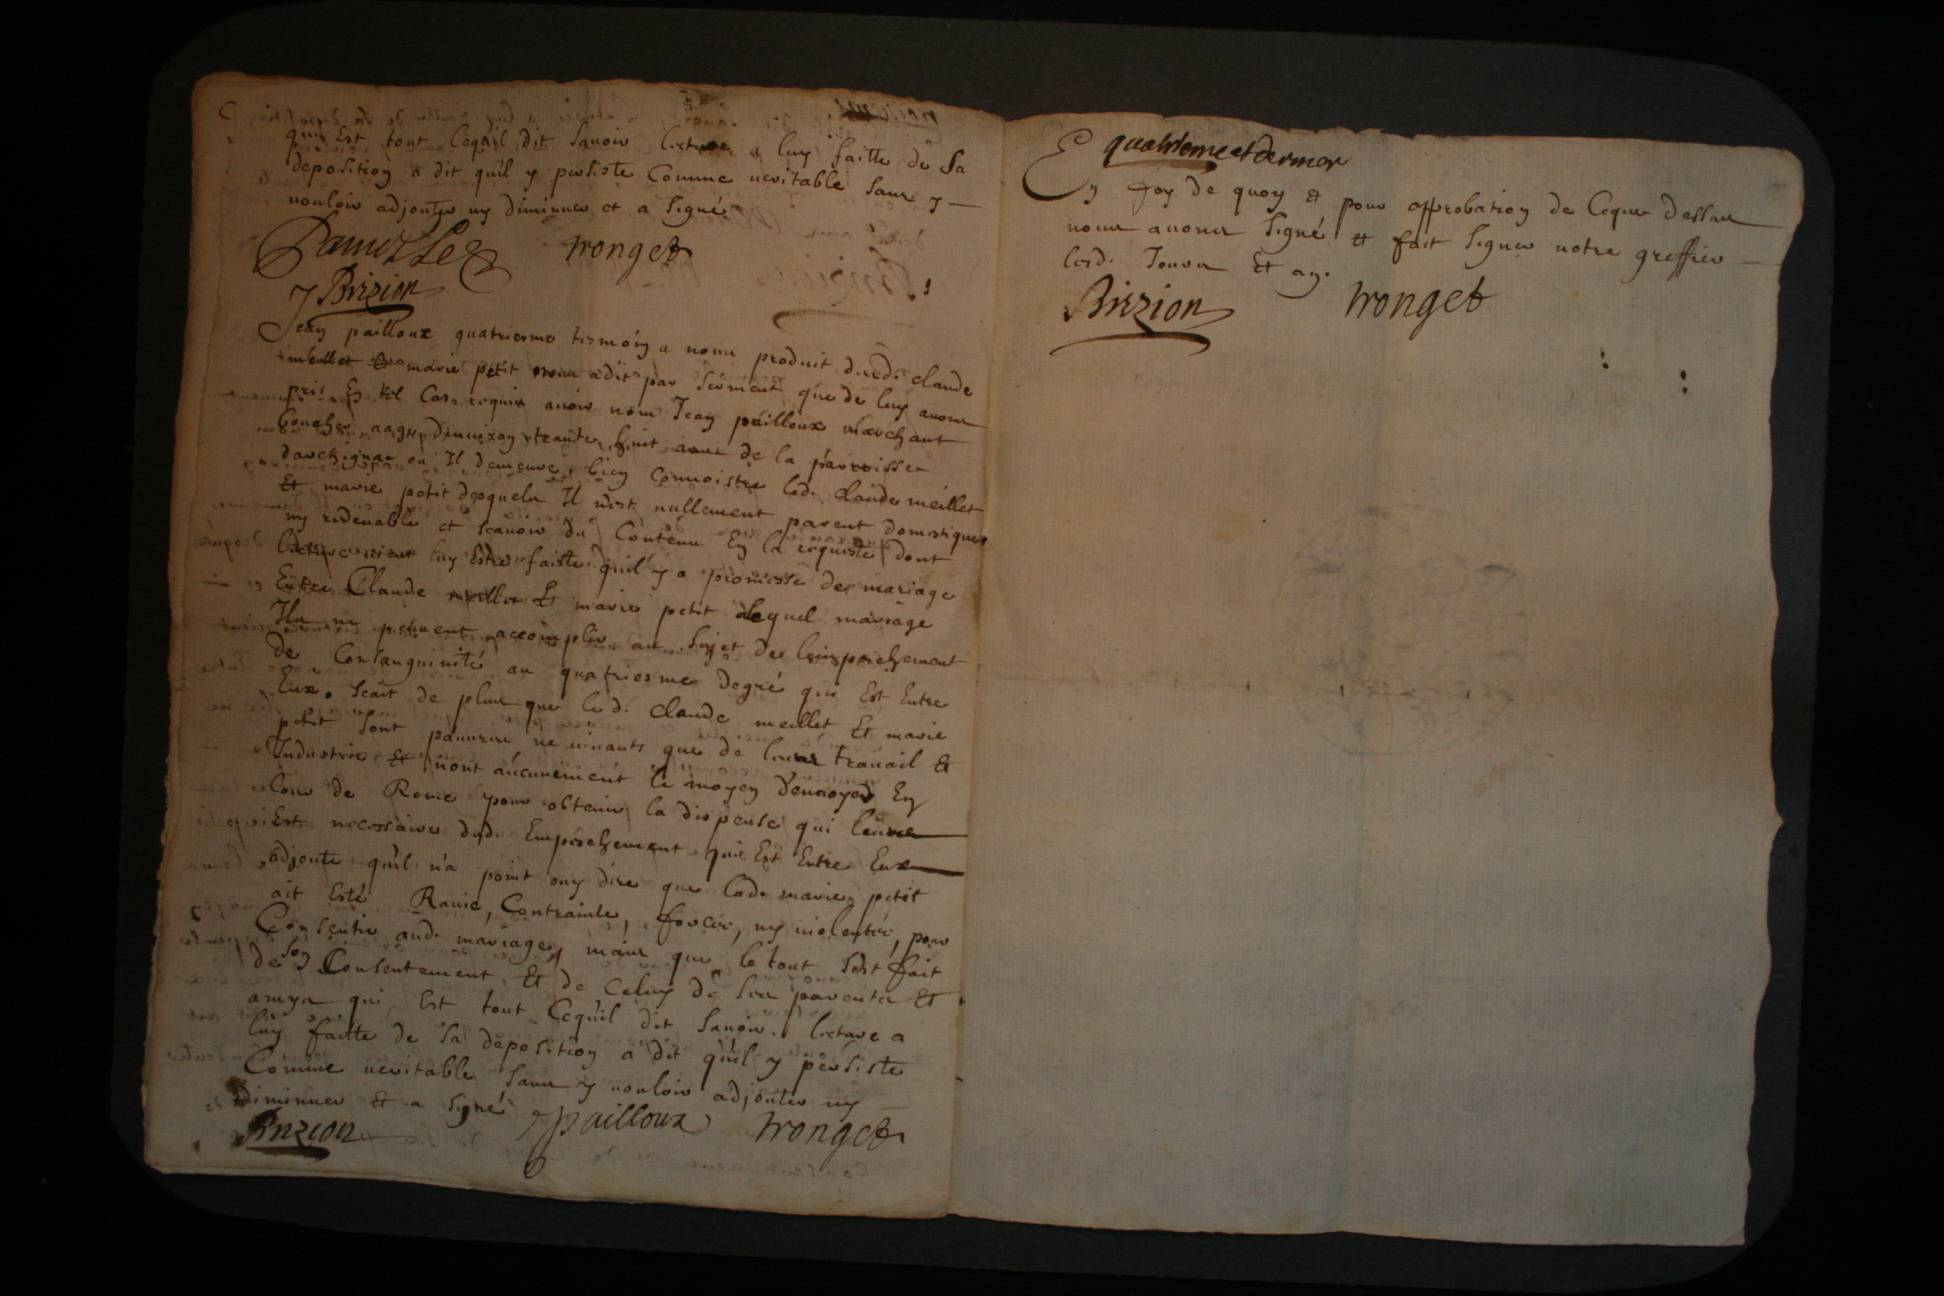 qui Est tout Cequil dit Sauoir lecture a luy faitte de Sa
deposition a dit qu'il y persiste Comme ueritable Sans y
uouloir adjouter ny diminuer et a Signé
tronget
Birzion
Jean pailloux quatriesme tesmoin a nous produit dud. claude
meillet Et marie petit nous a dit par Serment que de luy auons
pris En tel Cas requis auoir nom Jean pailloux marchant
boucher aagé d'enuiron trante huit ans de la parroisse
ou Il demeure, bien Connoistre led. claude meillet
Et marie petit desquels Il n'est nullement parent domestique
ny redeuable et scauoir du Contenu En la requeste dont
lecture uient luy Estre faitte qu'il y a promesse de mariage
Entre Claude meillet Et marie petit lequel mariage
Ils ne peuuent accomplir au Sujet de l'empeschement
de Consanguinité au quatriesme degré qui Est Entre
Eux. Scait de plus que led. claude meillet Et marie
petit Sont pauures ne uiuants que de leurs trauail Et
Industrie Et n'ont aucunement le moyen d'enuoyer En
Cour de Rome pour obtenir la dispense qui leurs
Est necessaire dud. Empeschement qui Est Entre Eux
adjoute qu'il n'a point ouy dire que lad. marie petit
ait Esté Rauie, Contrainte, forcée, ny uiolentée, pour
Consentir aud. mariage, mais que le tout s'est fait
de Son Consentement Et de Celuy de Ses parents Et
amys qui Est tout Cequ'il dit Sauoir. lecture a
luy faitte de Sa deposition a dit qu'il y persiste
Comme ueritable Sans y uouloir adjouter ny
diminuer Et a Signé
Birzion pailloux tronget
quatrieme et dernier
En foy de quoy Et pour approbation de Ceque dessus
nous auons Signé Et fait Signer notre greffier
lesd. Jours Et an.
Birzion tronget